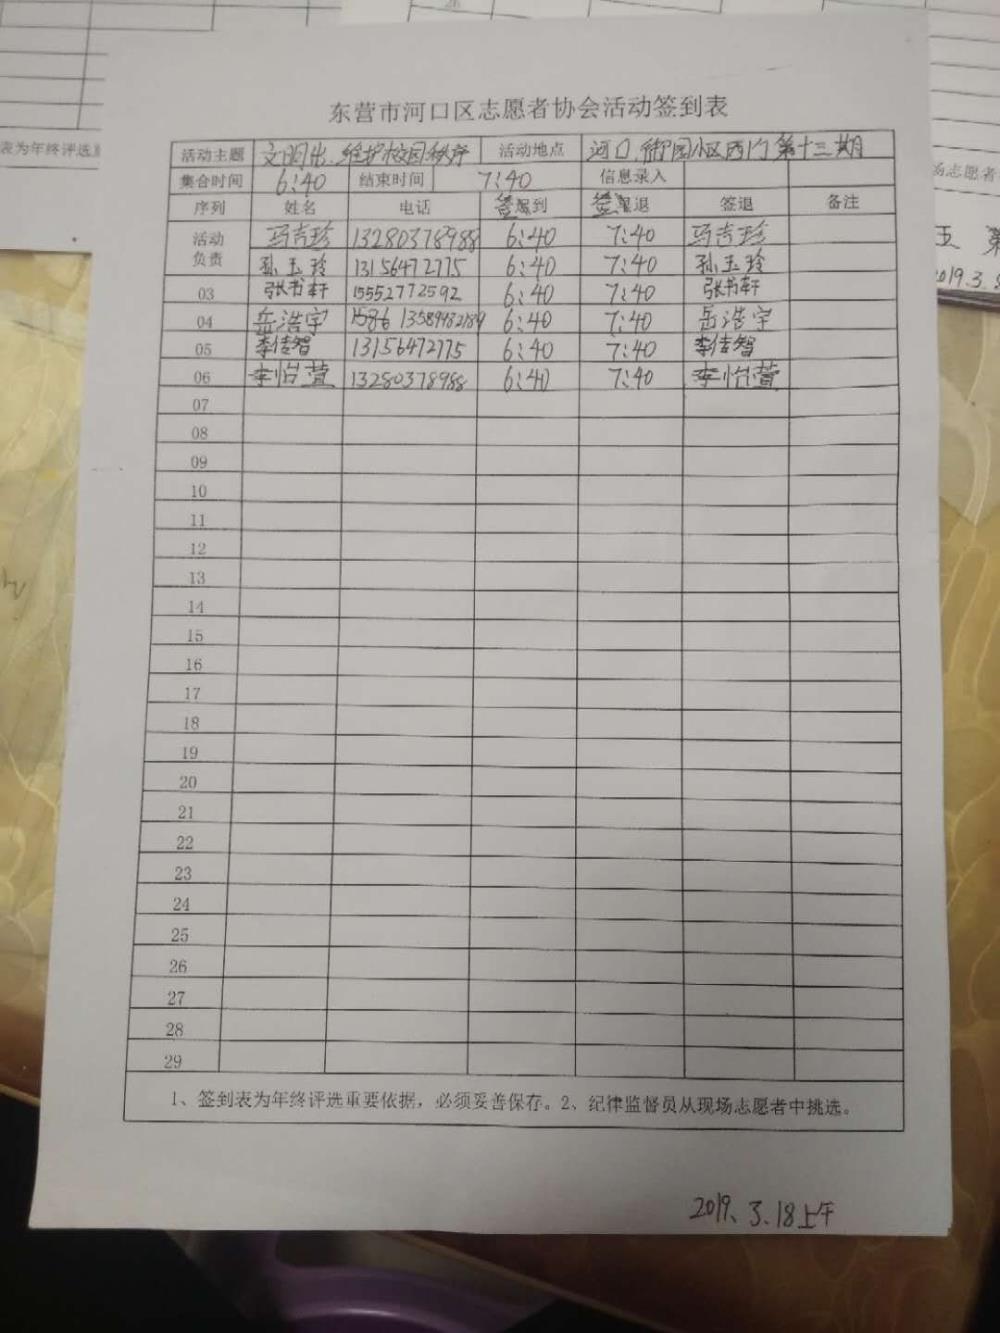 东营市河口区志愿者协会活动签到表
活动主题 文明出、维护校园秩序 活动地点 河口、御园小区西门第十三期
集合时间 6:40 结束时间 7:40 信息录入
序列 姓名 电话 签到 签退 签退 备注
活动负责 马吉珍 13280378988 6:40 7:40 马吉珍
孙玉玲 13156472775 6:40 7:40 孙玉玲
03 张书轩 15552772592 6:40 7:40 张书轩
04 岳浩宇 1586 13589982189 6:40 7:40 岳浩宇
05 李佳智 13156472775 6:40 7:40 李佳智
06 李怡萱 13280378988 6:40 7:40 李怡萱
07
08
09
10
11
12
13
14
15
16
17
18
19
20
21
22
23
24
25
26
27
28
29
1、签到表为年终评选重要依据，必须妥善保存。2、纪律监督员从现场志愿者中挑选。
2019、3、18上午
表为年终评选
场志愿者
2019.3.